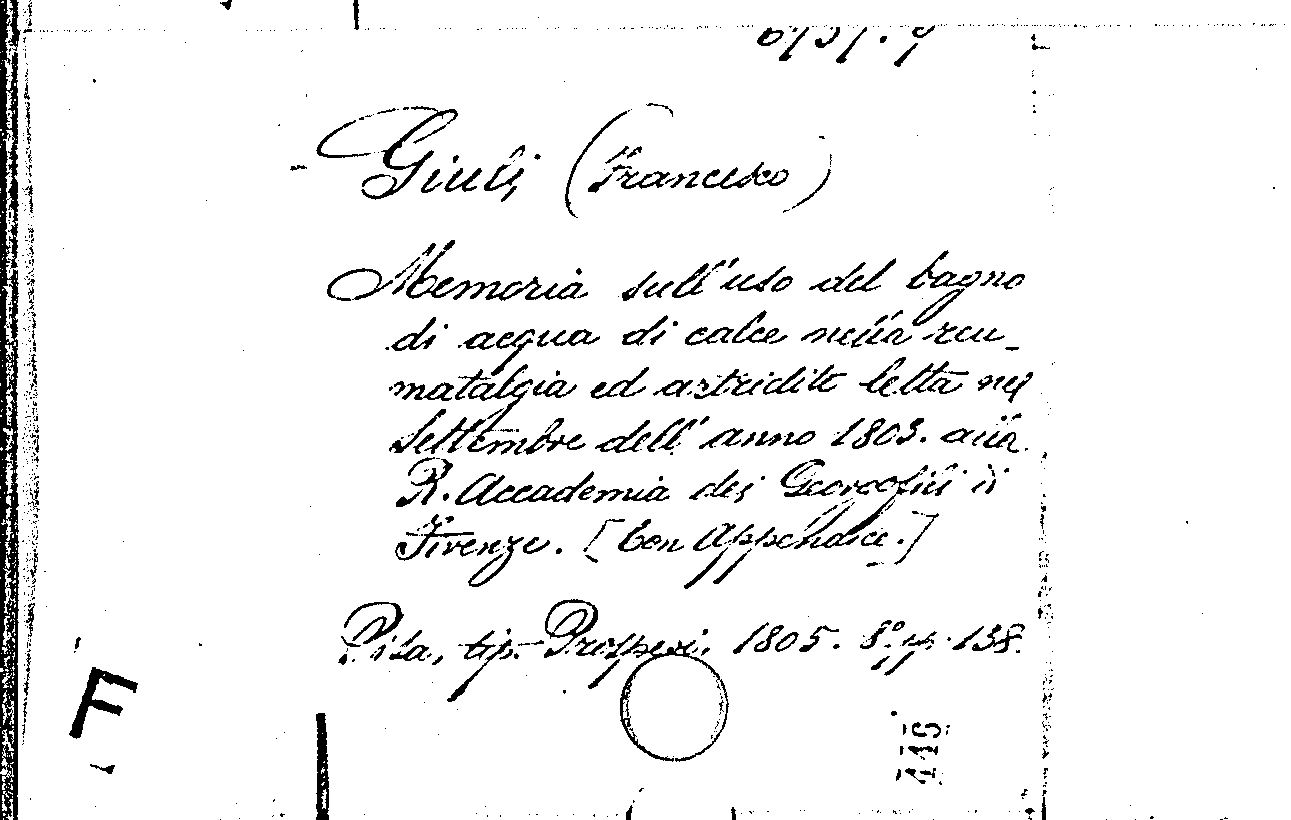 Giuli (Francesco)
Memoria sull'uso del bagno
di acqua di calce nella reu-
matalgia ed artridite letta nel
Settembre dell'anno 1803. alla
R. Accademia dei Georgofili di
Firenze. [Con Appendice.]
Pisa, tip. Prosperi, 1805. 8.° pp. 138.
F